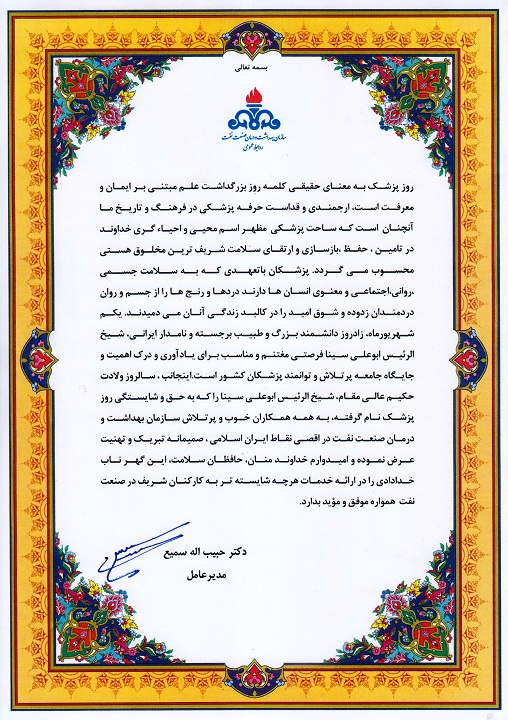 بسمه تعالی
سازمان بهداشت و درمان صنعت نفت
روابط عمومی
روز پزشک به معنای حقیقی کلمه روز بزرگداشت علم مبتنی بر ایمان و
معرفت است، ارجمندی و قداست حرفه پزشکی در فرهنگ و تاریخ ما
آنچنان است که ساحت پزشکی مظهر اسم محیی و احیاء گری خداوند
در تامین ، حفظ ،بازسازی و ارتقای سلامت شریف ترین مخلوق هستی
محسوب می گردد. پزشکان باتعهدی که به سلامت جسمی
،روانی،اجتماعی و معنوی انسان ها دارند دردها و رنج ها را از جسم و روان
دردمندان زدوده و شوق امید را در کالبد زندگی آنان می دمیدند. یکم
شهریورماه، زادروز دانشمند بزرگ و طبیب برجسته و نامدار ایرانی، شیخ
الرئیس ابوعلی سینا فرصتی مغتنم و مناسب برای یادآوری و درک اهمیت و
جایگاه جامعه پرتلاش و توانمند پزشکان کشور است.اینجانب ، سالروز ولادت
حکیم عالی مقام، شیخ الرئیس ابوعلی سینا را که به حق و شایستگی روز
پزشک نام گرفته، به همه همکاران خوب و پرتلاش سازمان بهداشت و
درمان صنعت نفت در اقصی نقاط ایران اسلامی ، صمیمانه تبریک و تهنیت
عرض نموده و امیدوارم خداوند منان، حافظان سلامت، این گهر ناب
خدادادی را در ارائه خدمات هرچه شایسته تر به کارکنان شریف در صنعت
نفت همواره موفق و مؤید بدارد.
دکتر حبیب اله سمیع
مدیرعامل